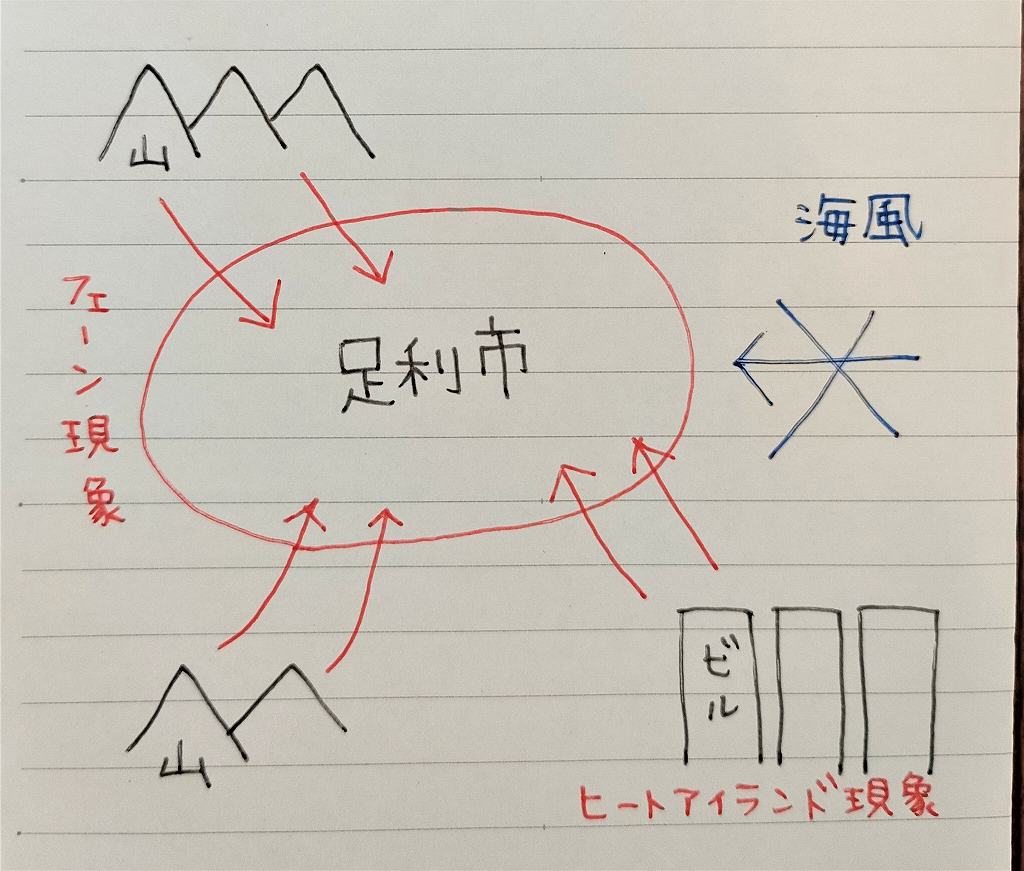 山
海風
フェーン現象
足利市
ビル
山
ヒートアイランド現象